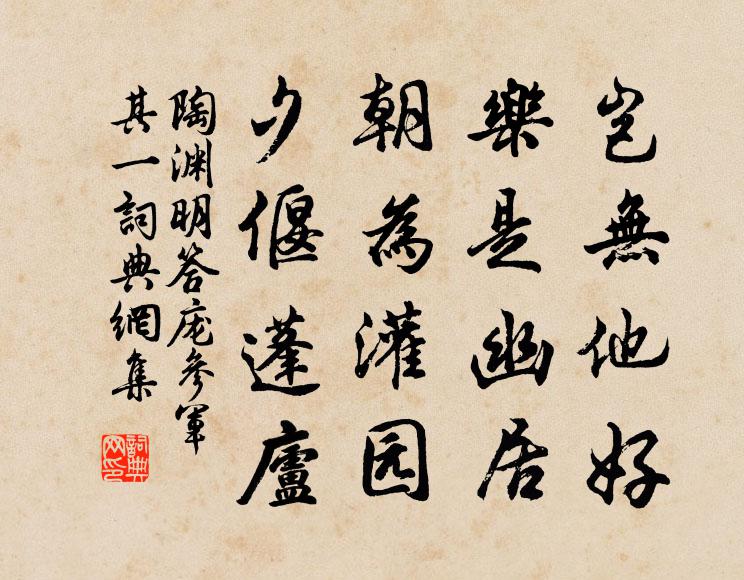 豈無他好
樂是幽居
朝為灌园
夕偃蓬廬
陶渊明答庞參軍
其一詞典網集
詞典网印